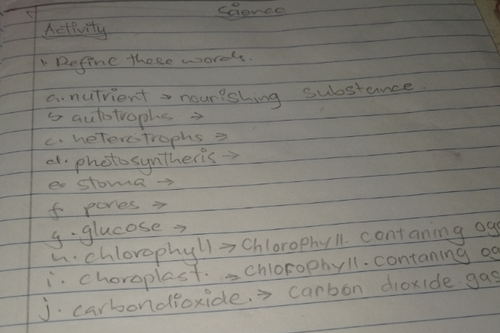 Science
Activity
1. Define these words.
a. nutrient → nourishing substance.
b autotrophs →
c. heterotrophs →
d. photosyntheris →
e. stoma →
f pores →
g. glucose →
h. chlorophyll → Chlorophyll. contaning
i. choroplast. → Chlorophyll. contaning
j. carbondioxide. → carbon dioxide gas